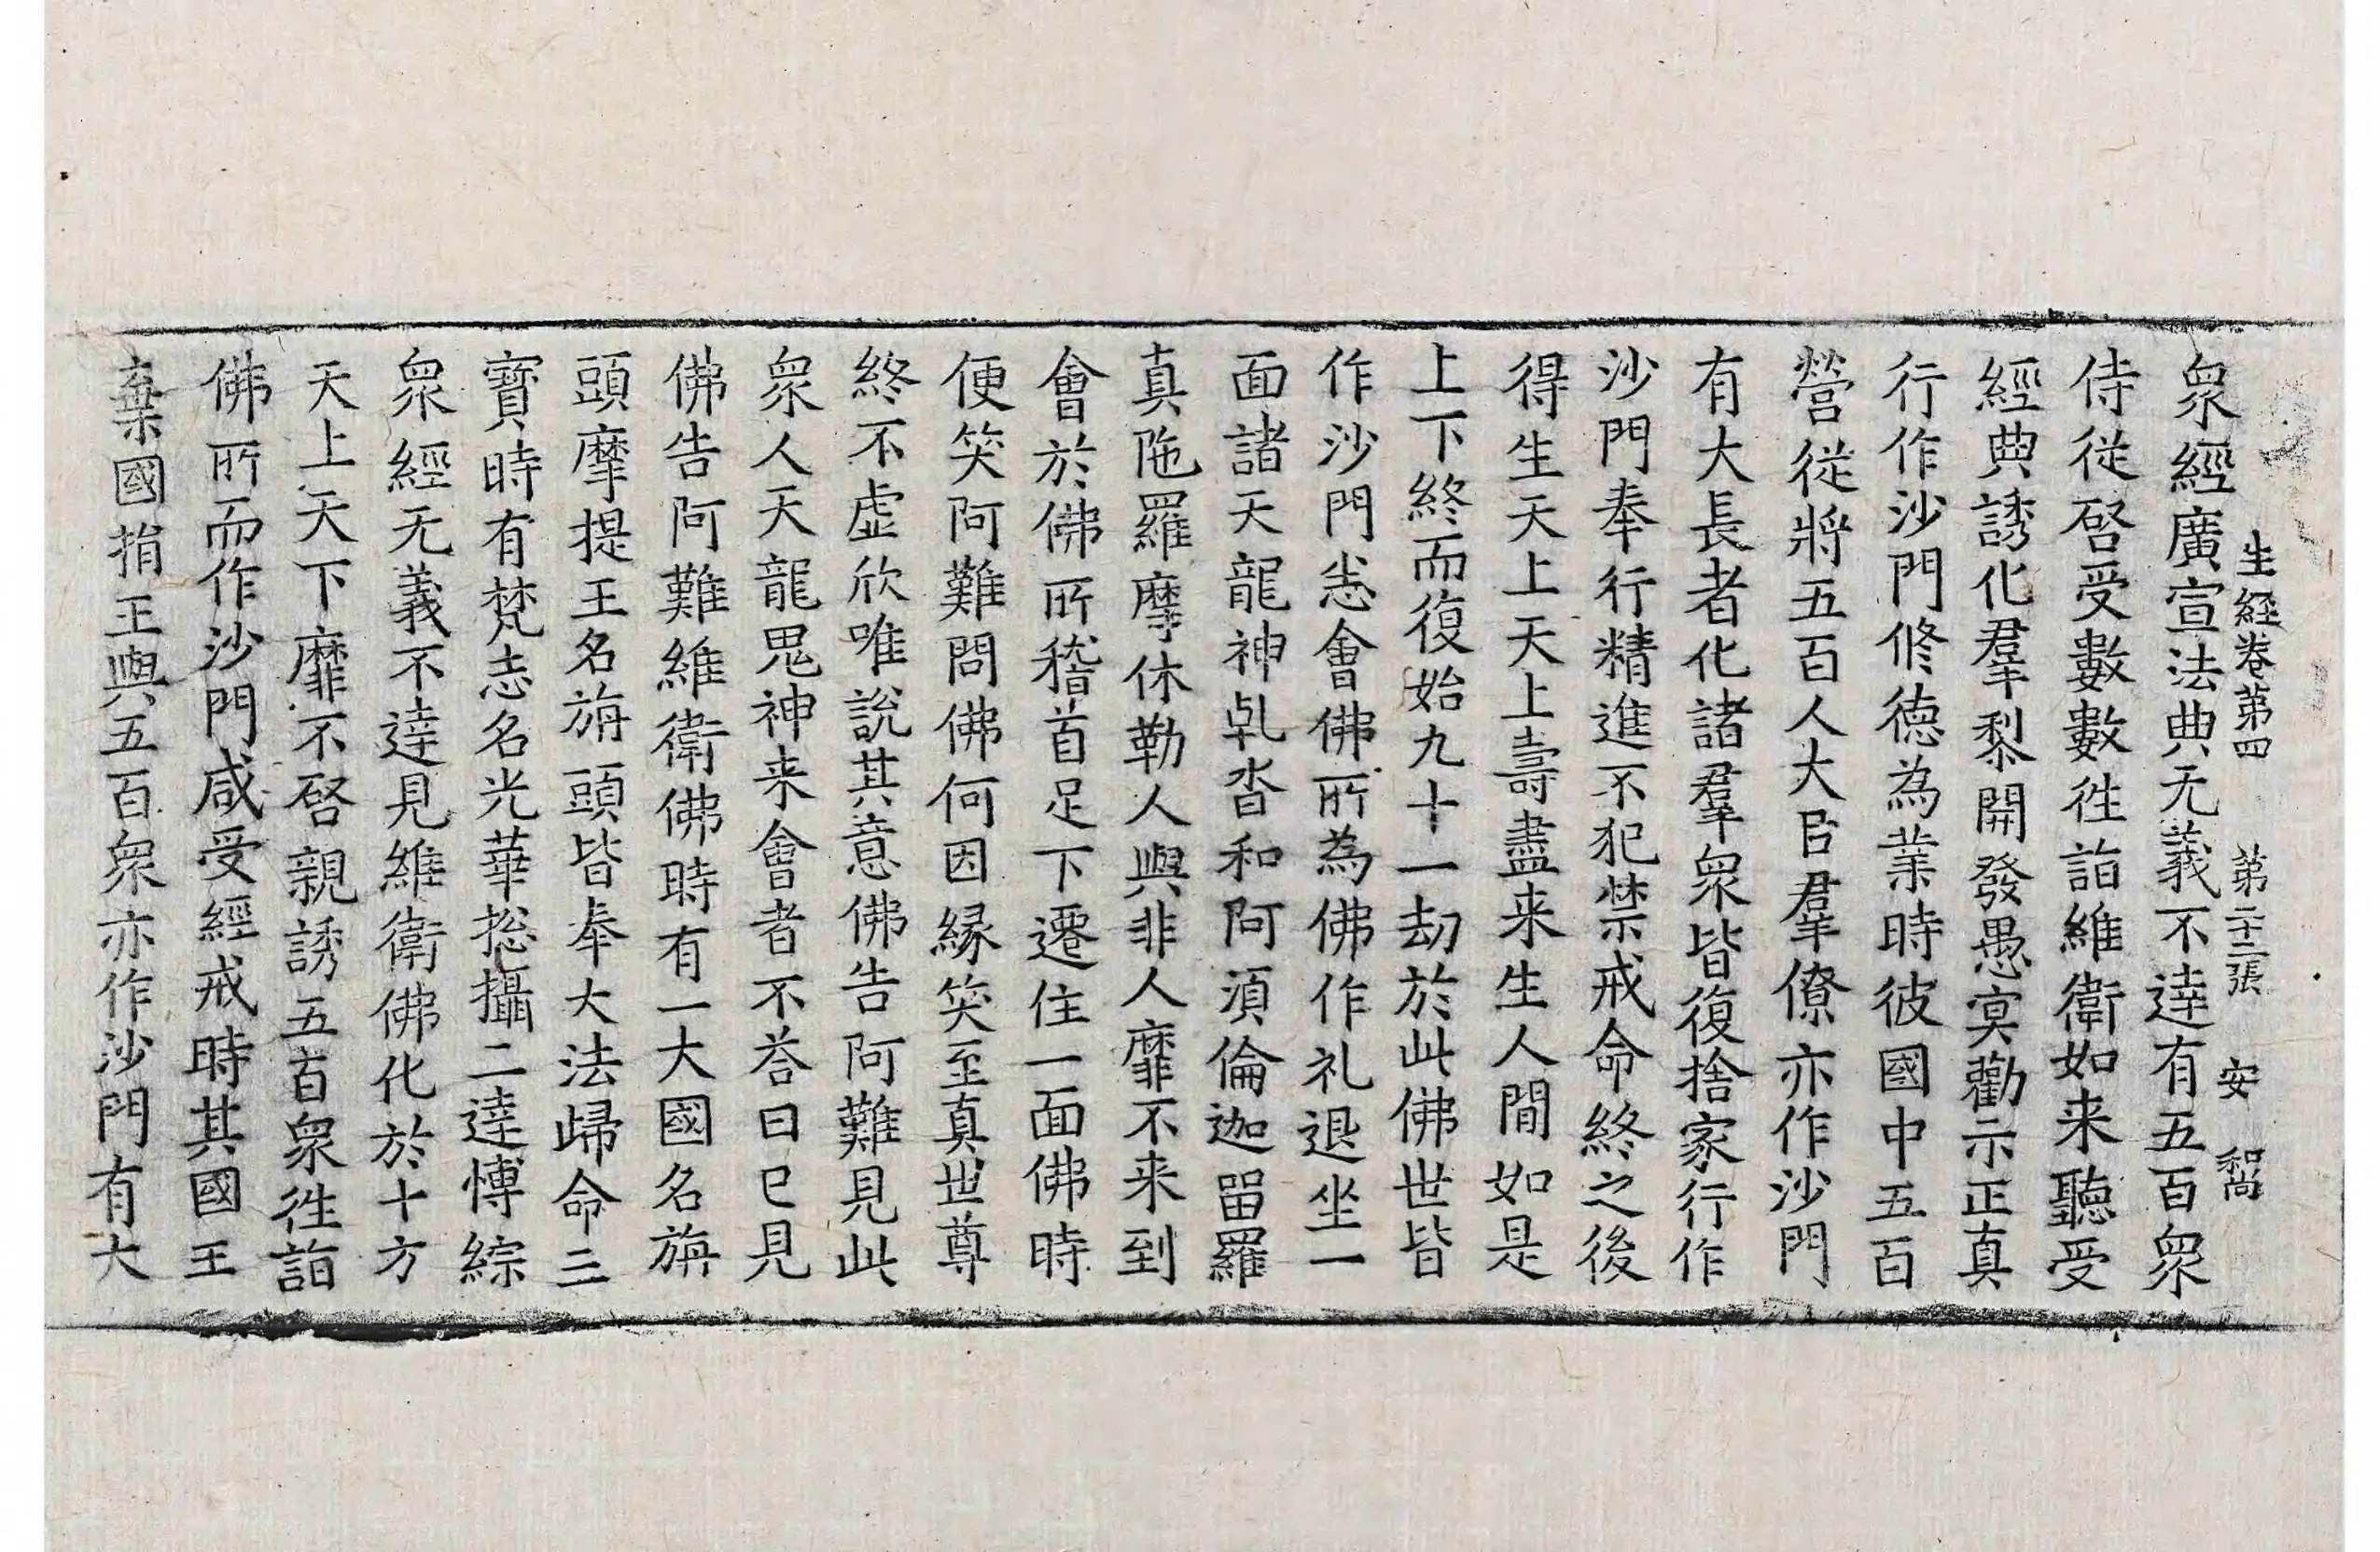 生經卷第四　第二十二張　安　和尚
衆經廣宣法典无義不達有五百衆
侍從啓受數數往詣維衛如来聽受
經典誘化羣黎開發愚冥勸示正真
行作沙門修德為業時彼國中五百
營從將五百人大臣羣僚亦作沙門
有大長者化諸羣衆皆復捨家行作
沙門奉行精進不犯禁戒命終之後
得生天上天上壽盡来生人間如是
上下終而復始九十一劫於此佛世皆
作沙門恙會佛所為佛作礼退坐一
面諸天龍神乹沓和阿湏倫迦留羅
真陁羅摩休勒人與非人靡不来到
會於佛所稽首足下遷住一面佛時
便笑阿難問佛何因緣笑至真世尊
終不虛欣唯說其意佛告阿難見此
衆人天龍鬼神来會者不荅曰已見
佛告阿難維衛佛時有一大國名旃
頭摩提王名旃頭皆奉大法歸命三
寶時有梵志名光華捴攝二達愽綜
衆經无義不達見維衛佛化於十方
天上天下靡不啓親誘五百衆往詣
佛所而作沙門咸受經戒時其國王
棄國捐王與五百衆亦作沙門有大